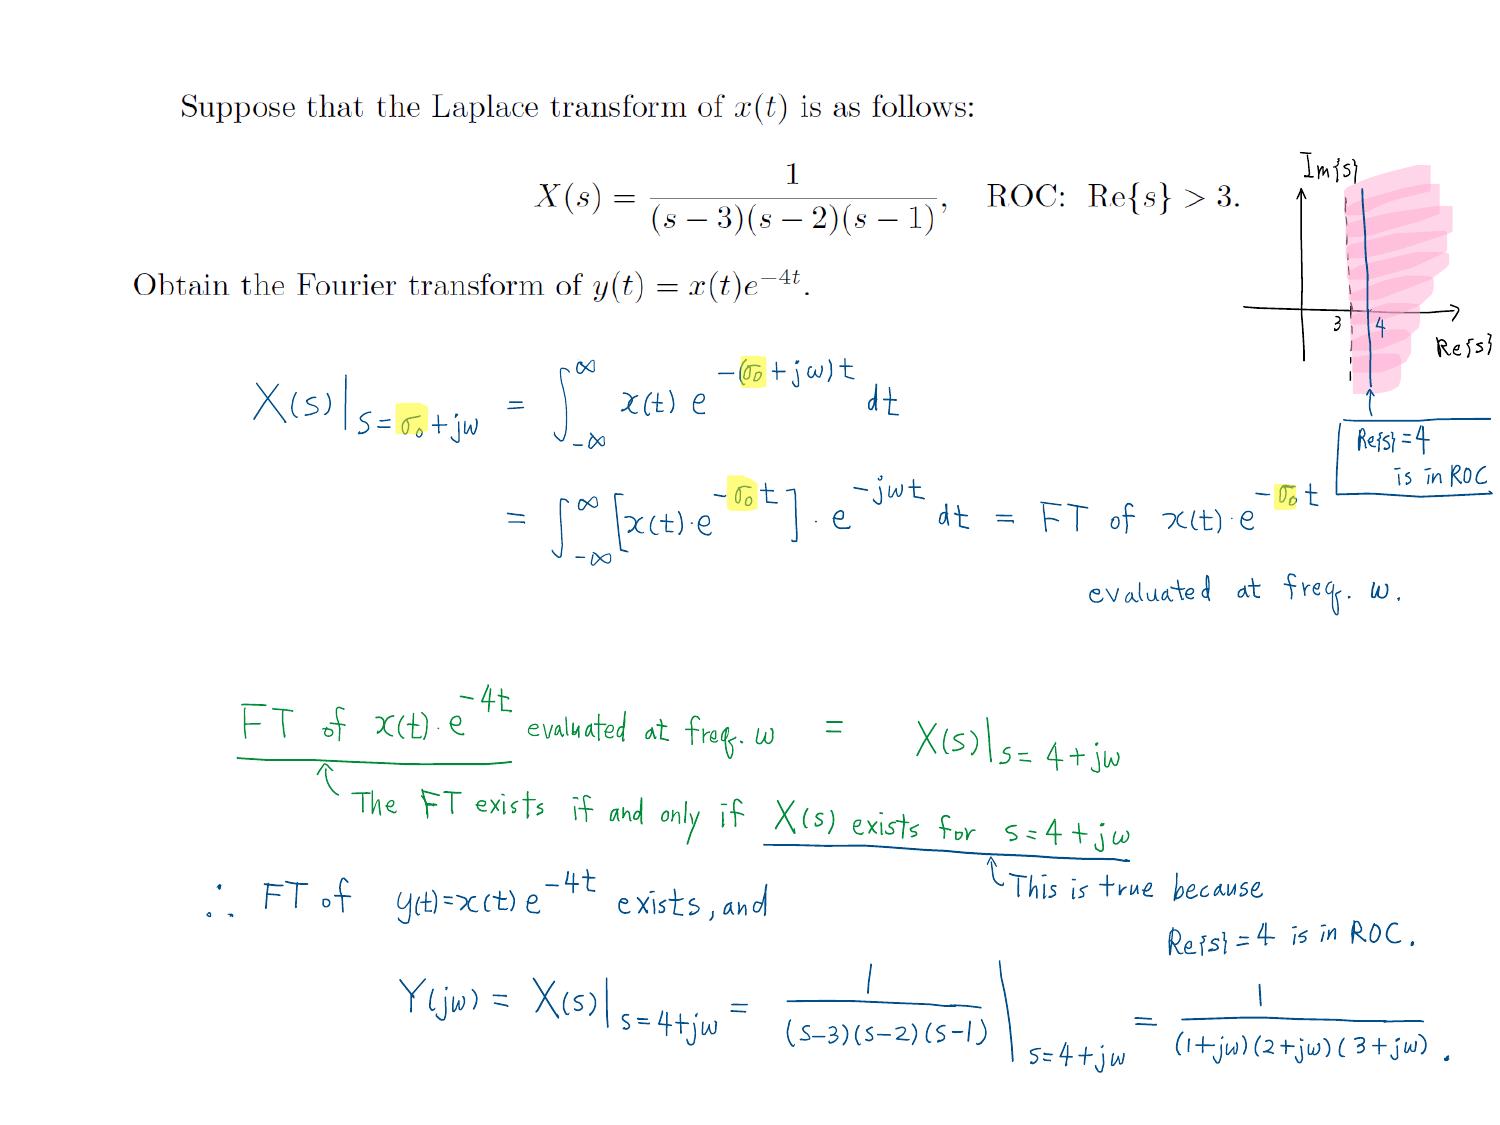 Suppose that the Laplace transform of x(t) is as follows:
X(s) = 1 / ((s − 3)(s − 2)(s − 1)), ROC: Re{s} > 3.
Im{s}
3 4
Re{s}
Re{s}=4
is in ROC
Obtain the Fourier transform of y(t) = x(t)e^{−4t}.
X(s)|_{s=σ₀+jω} = ∫_{-∞}^{∞} x(t) e^{-(σ₀+jω)t} dt
= ∫_{-∞}^{∞} [x(t)·e^{-σ₀t}]·e^{-jωt} dt = FT of x(t)·e^{-σ₀t}
evaluated at freq. ω.
FT of x(t)·e^{-4t} evaluated at freq. ω = X(s)|_{s=4+jω}
The FT exists if and only if X(s) exists for s=4+jω
This is true because
Re{s}=4 is in ROC.
∴ FT of y(t)=x(t)e^{-4t} exists, and
Y(jω) = X(s)|_{s=4+jω} = 1 / ((s-3)(s-2)(s-1)) |_{s=4+jω} = 1 / ((1+jω)(2+jω)(3+jω)).